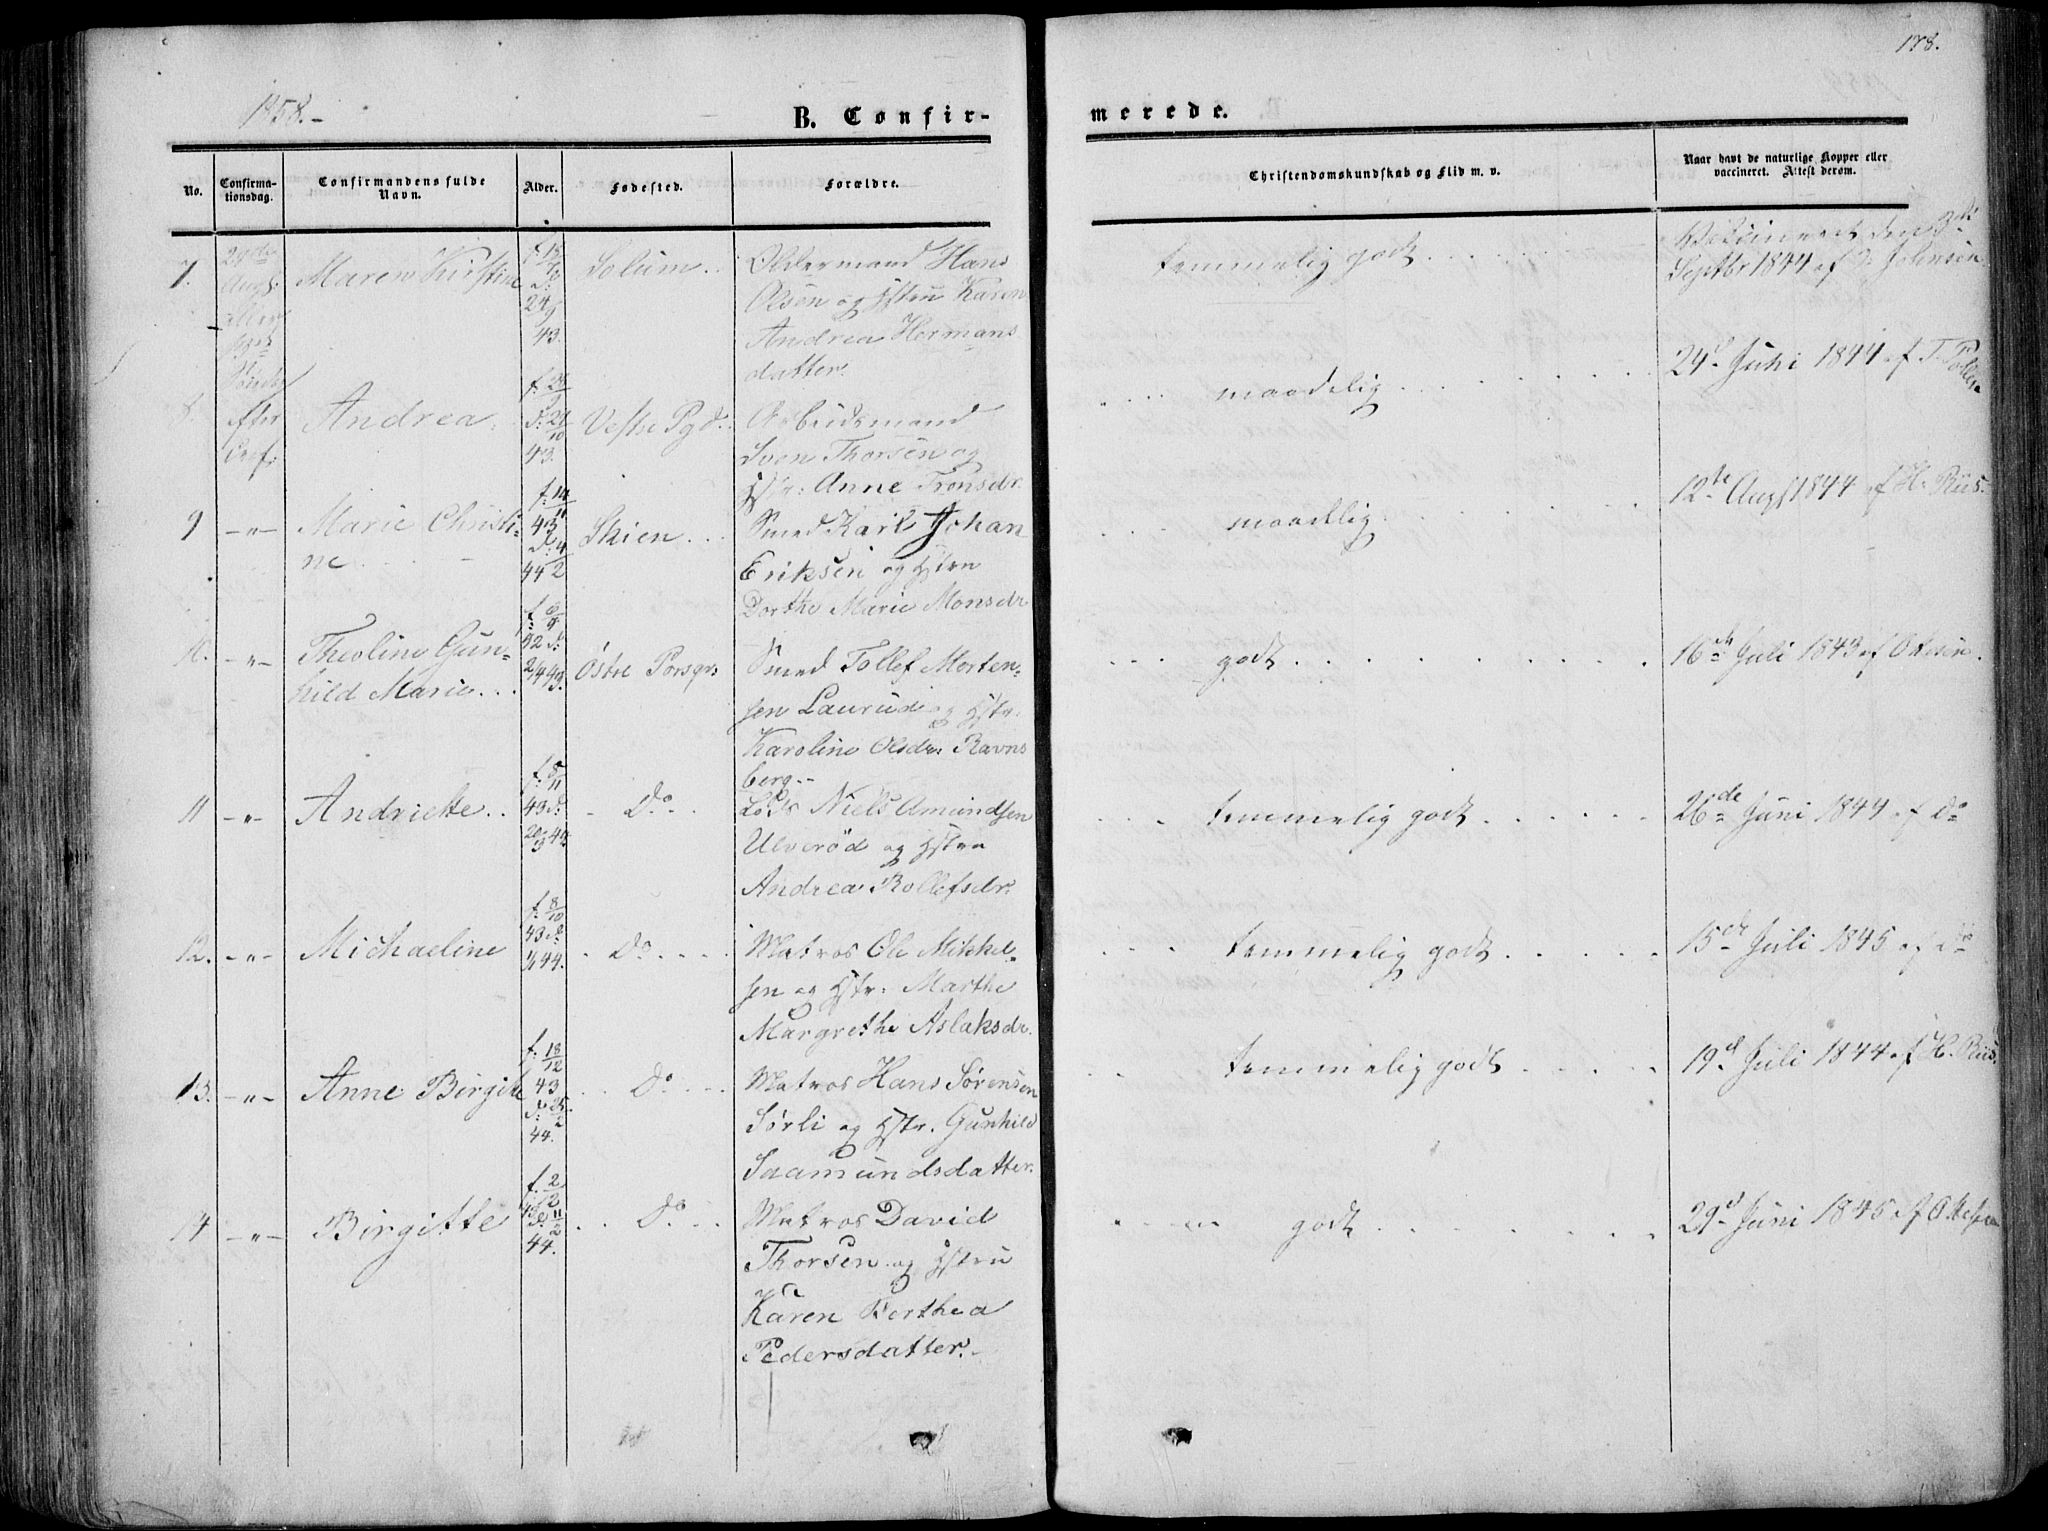 178.
1858.-
B. Confir-
merede.
No.
Confirma-
tionsdag.
Confirmandens fulde
Navn.
Alder.
Fødested.
Forældre.
Christendomskundskab og Flid m. v.
Naar havt de naturlige Kopper eller
vaccineret. Attest derom.
7.
Maren Kirstine
24/9
43.
Solum..
Oldermand Hans
Olsen og Hstru Karen
Andrea Hermans
datter.
temmelig godt
den 3di
Septbr 1844 af
8.
efter
Andrea.
43.
Arbeidsmand
Sven Thorsen og
Hstr: Anne Tronsdr.
maadelig
24d Juni 1844 af T.
9
-"-
Marie Christi-
ne
f: 14/11
43
d: 4/2
44
Skien...
Smed Karl Johan
Eriksen og Hstru
Dorthe Marie Monsdr
maadelig
12te Aug 1844 af H. Riis.
10.
-"-
Theoline Gun-
hild Marie...
f: 6/9
42 d:
2/4 43.
Østre Porsgr.
Smed Tollef Morten-
sen Laurud og Hstr.
Karoline Olsdr. Ravns
berg.-
godt
16de Juli 1843 af Ottesen.
11
-"-
Andriette..
f: 5/11
43 d:
20/3 44
Do
Lods Niels Amundsen
Ulverød og Hstru
Andrea Rollefsdr.
temmelig godt
26de Juni 1844 af Do
12.
-"-
Michaeline
f: 8/10
43 d:
1/1 44.
Do
Matros Ole Mikkel-
sen og Hstr: Marthe
Margrethe Aslaksdr.
temmelig godt
15de Juli 1845 af Do
13.
-"-
Anne Birgitte
f: 18/12
43
d: 25/2
44.
Do
Matros Hans Sørensen
Sørli og Hstr. Gunhild
Saamundsdatter.
temmelig godt
19d Juli 1844 af H. Riis.
14
-"-
Birgitte
f: 2/2
d: 11/2
44.
Do
Matros David
Thorsen og Hstru
Karen Berthea
Pedersdatter.-
godt
29d Juni 1845 af Ottesen